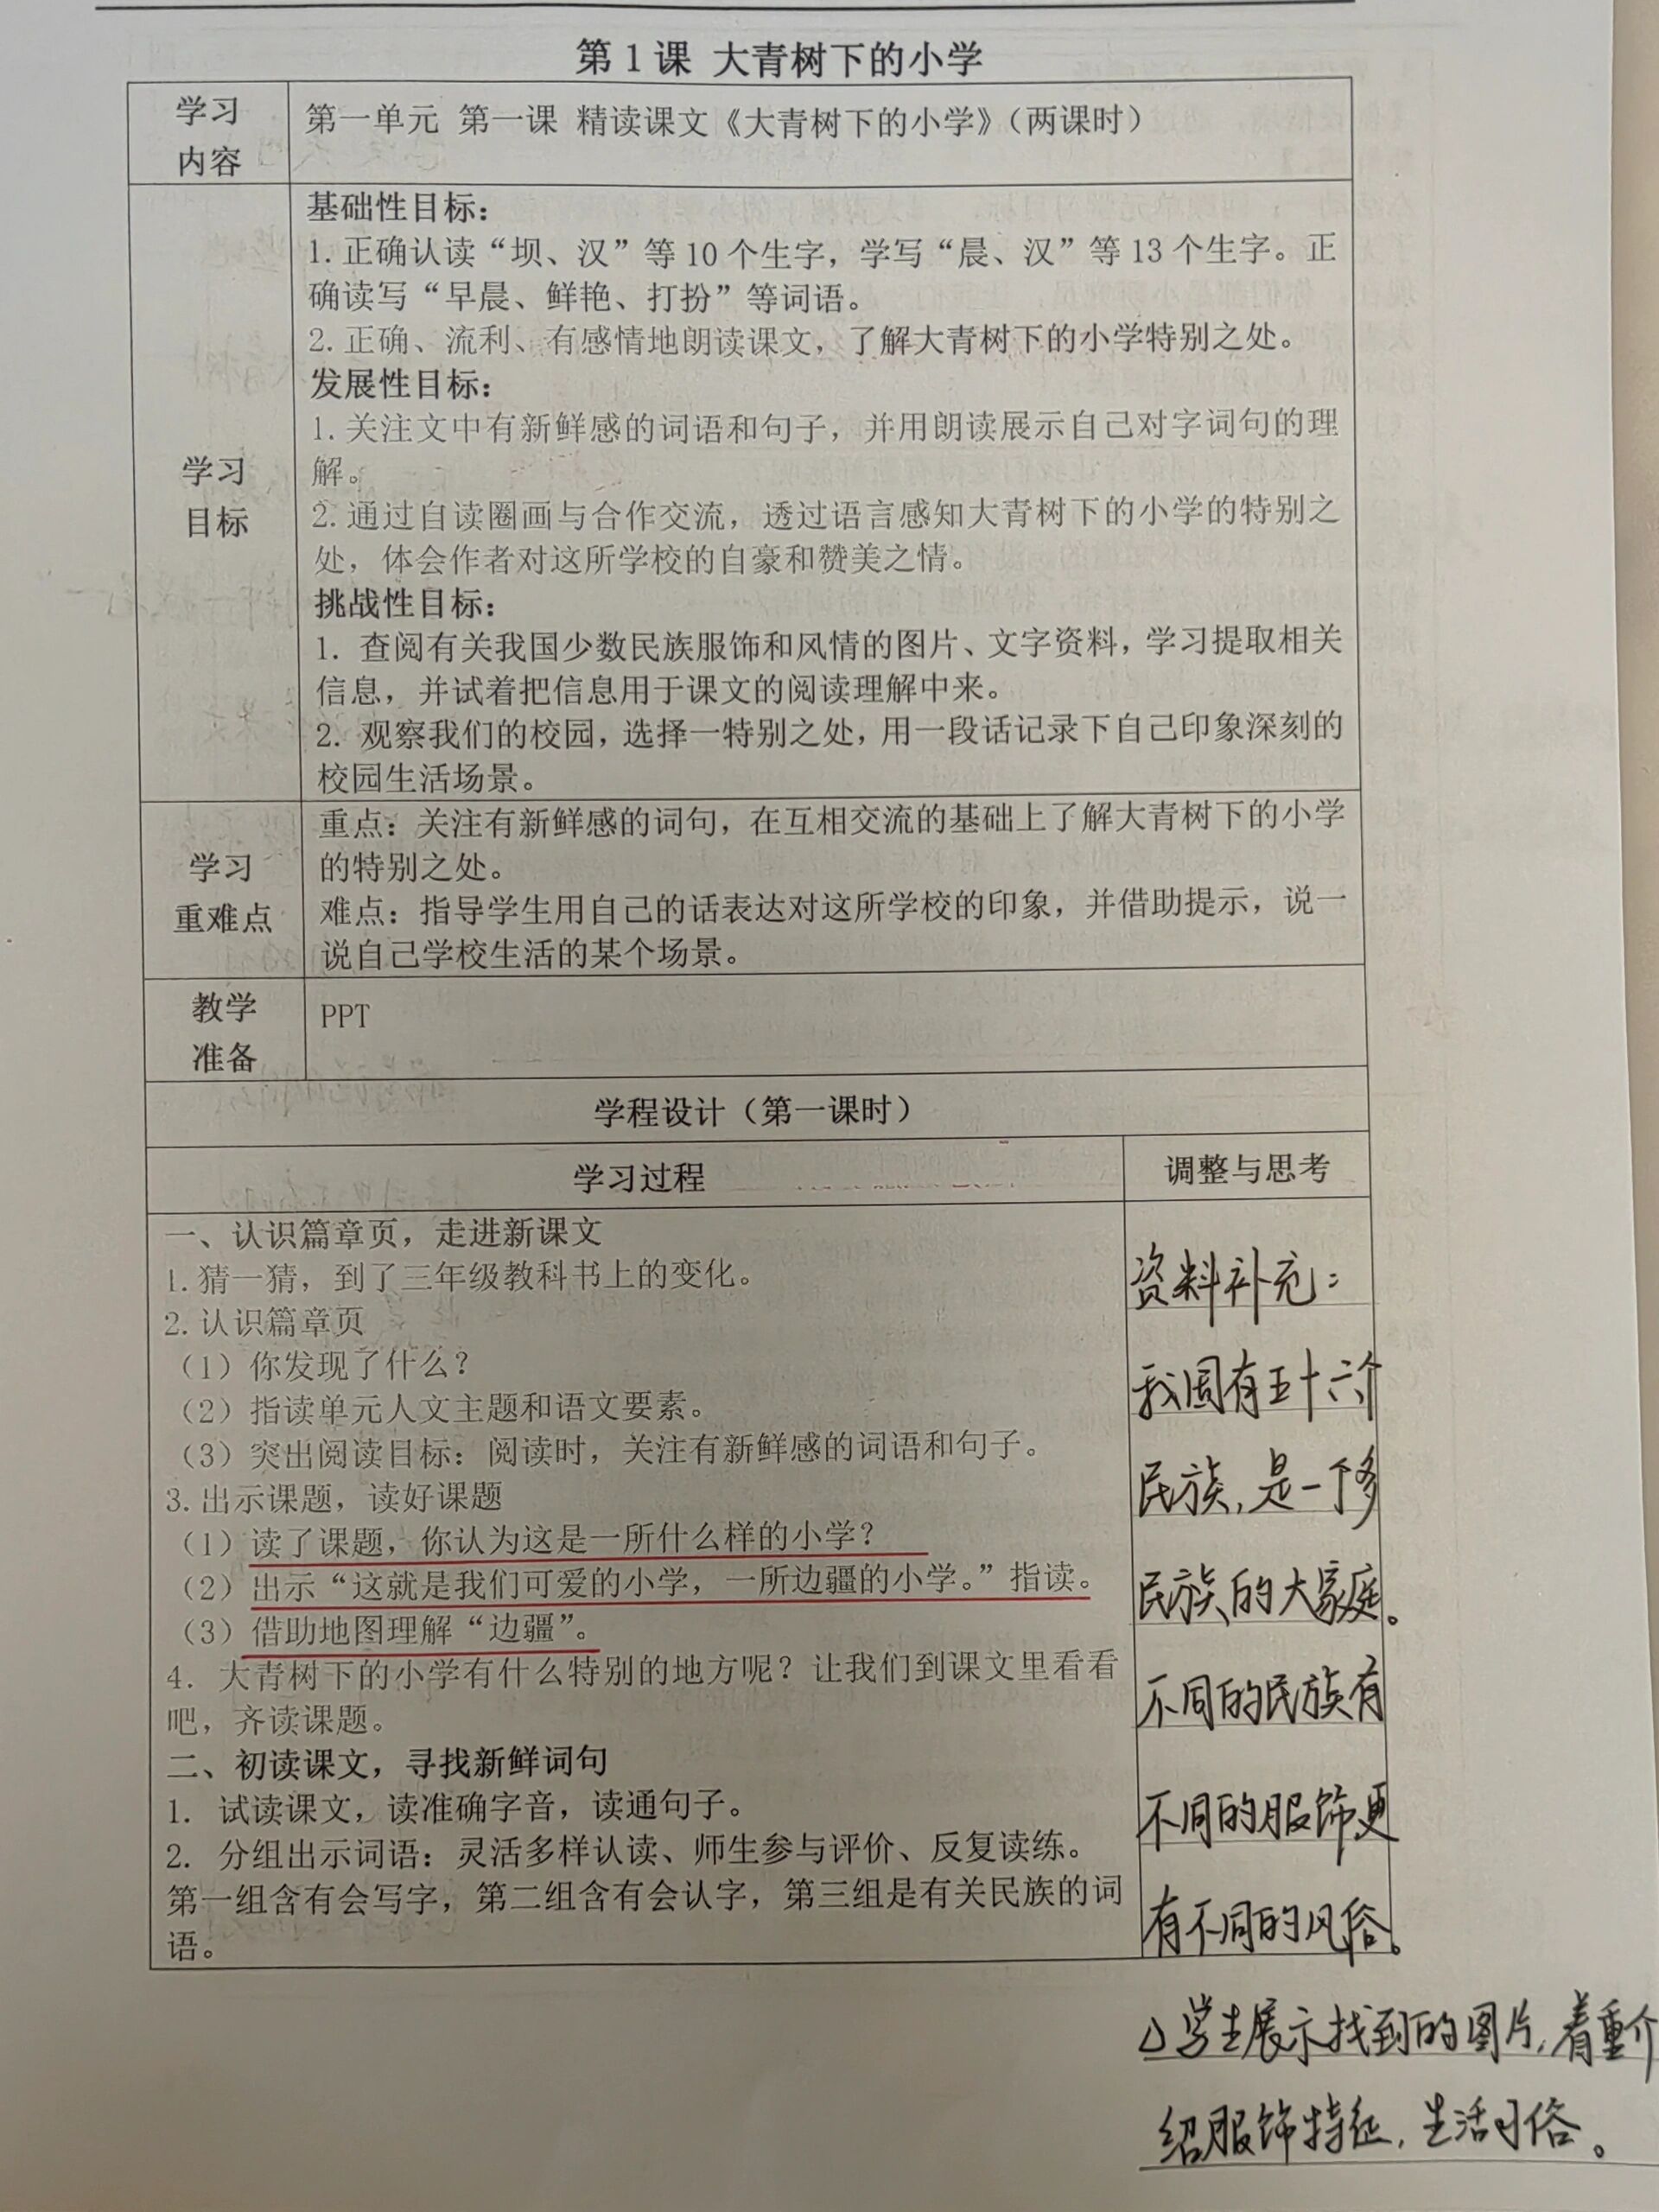 第1课 大青树下的小学
学习
内容
第一单元 第一课 精读课文《大青树下的小学》（两课时）
学习
目标
基础性目标：
1. 正确认读“坝、汉”等 10 个生字，学写“晨、汉”等 13 个生字。正
确读写“早晨、鲜艳、打扮”等词语。
2. 正确、流利、有感情地朗读课文，了解大青树下的小学特别之处。
发展性目标：
1. 关注文中有新鲜感的词语和句子，并用朗读展示自己对字词句的理
解。
2. 通过自读圈画与合作交流，透过语言感知大青树下的小学的特别之
处，体会作者对这所学校的自豪和赞美之情。
挑战性目标：
1. 查阅有关我国少数民族服饰和风情的图片、文字资料，学习提取相关
信息，并试着把信息用于课文的阅读理解中来。
2. 观察我们的校园，选择一特别之处，用一段话记录下自己印象深刻的
校园生活场景。
学习
重难点
重点：关注有新鲜感的词句，在互相交流的基础上了解大青树下的小学
的特别之处。
难点：指导学生用自己的话表达对这所学校的印象，并借助提示，说一
说自己学校生活的某个场景。
教学
准备
PPT
学程设计（第一课时）
学习过程
调整与思考
一、认识篇章页，走进新课文
1. 猜一猜，到了三年级教科书上的变化。
2. 认识篇章页
（1）你发现了什么？
（2）指读单元人文主题和语文要素。
（3）突出阅读目标：阅读时，关注有新鲜感的词语和句子。
3. 出示课题，读好课题
（1）读了课题，你认为这是一所什么样的小学？
（2）出示“这就是我们可爱的小学，一所边疆的小学。”指读。
（3）借助地图理解“边疆”。
4. 大青树下的小学有什么特别的地方呢？让我们到课文里看看
吧，齐读课题。
二、初读课文，寻找新鲜词句
1. 试读课文，读准确字音，读通句子。
2. 分组出示词语：灵活多样认读、师生参与评价、反复读练。
第一组含有会写字，第二组含有会认字，第三组是有关民族的词
语。
资料补充：
我国有五十六个
民族，是一个多
民族的大家庭。
不同的民族有
不同的服饰更
有不同的风俗。
△学生展示找到的图片，着重介
绍服饰特征，生活习俗。